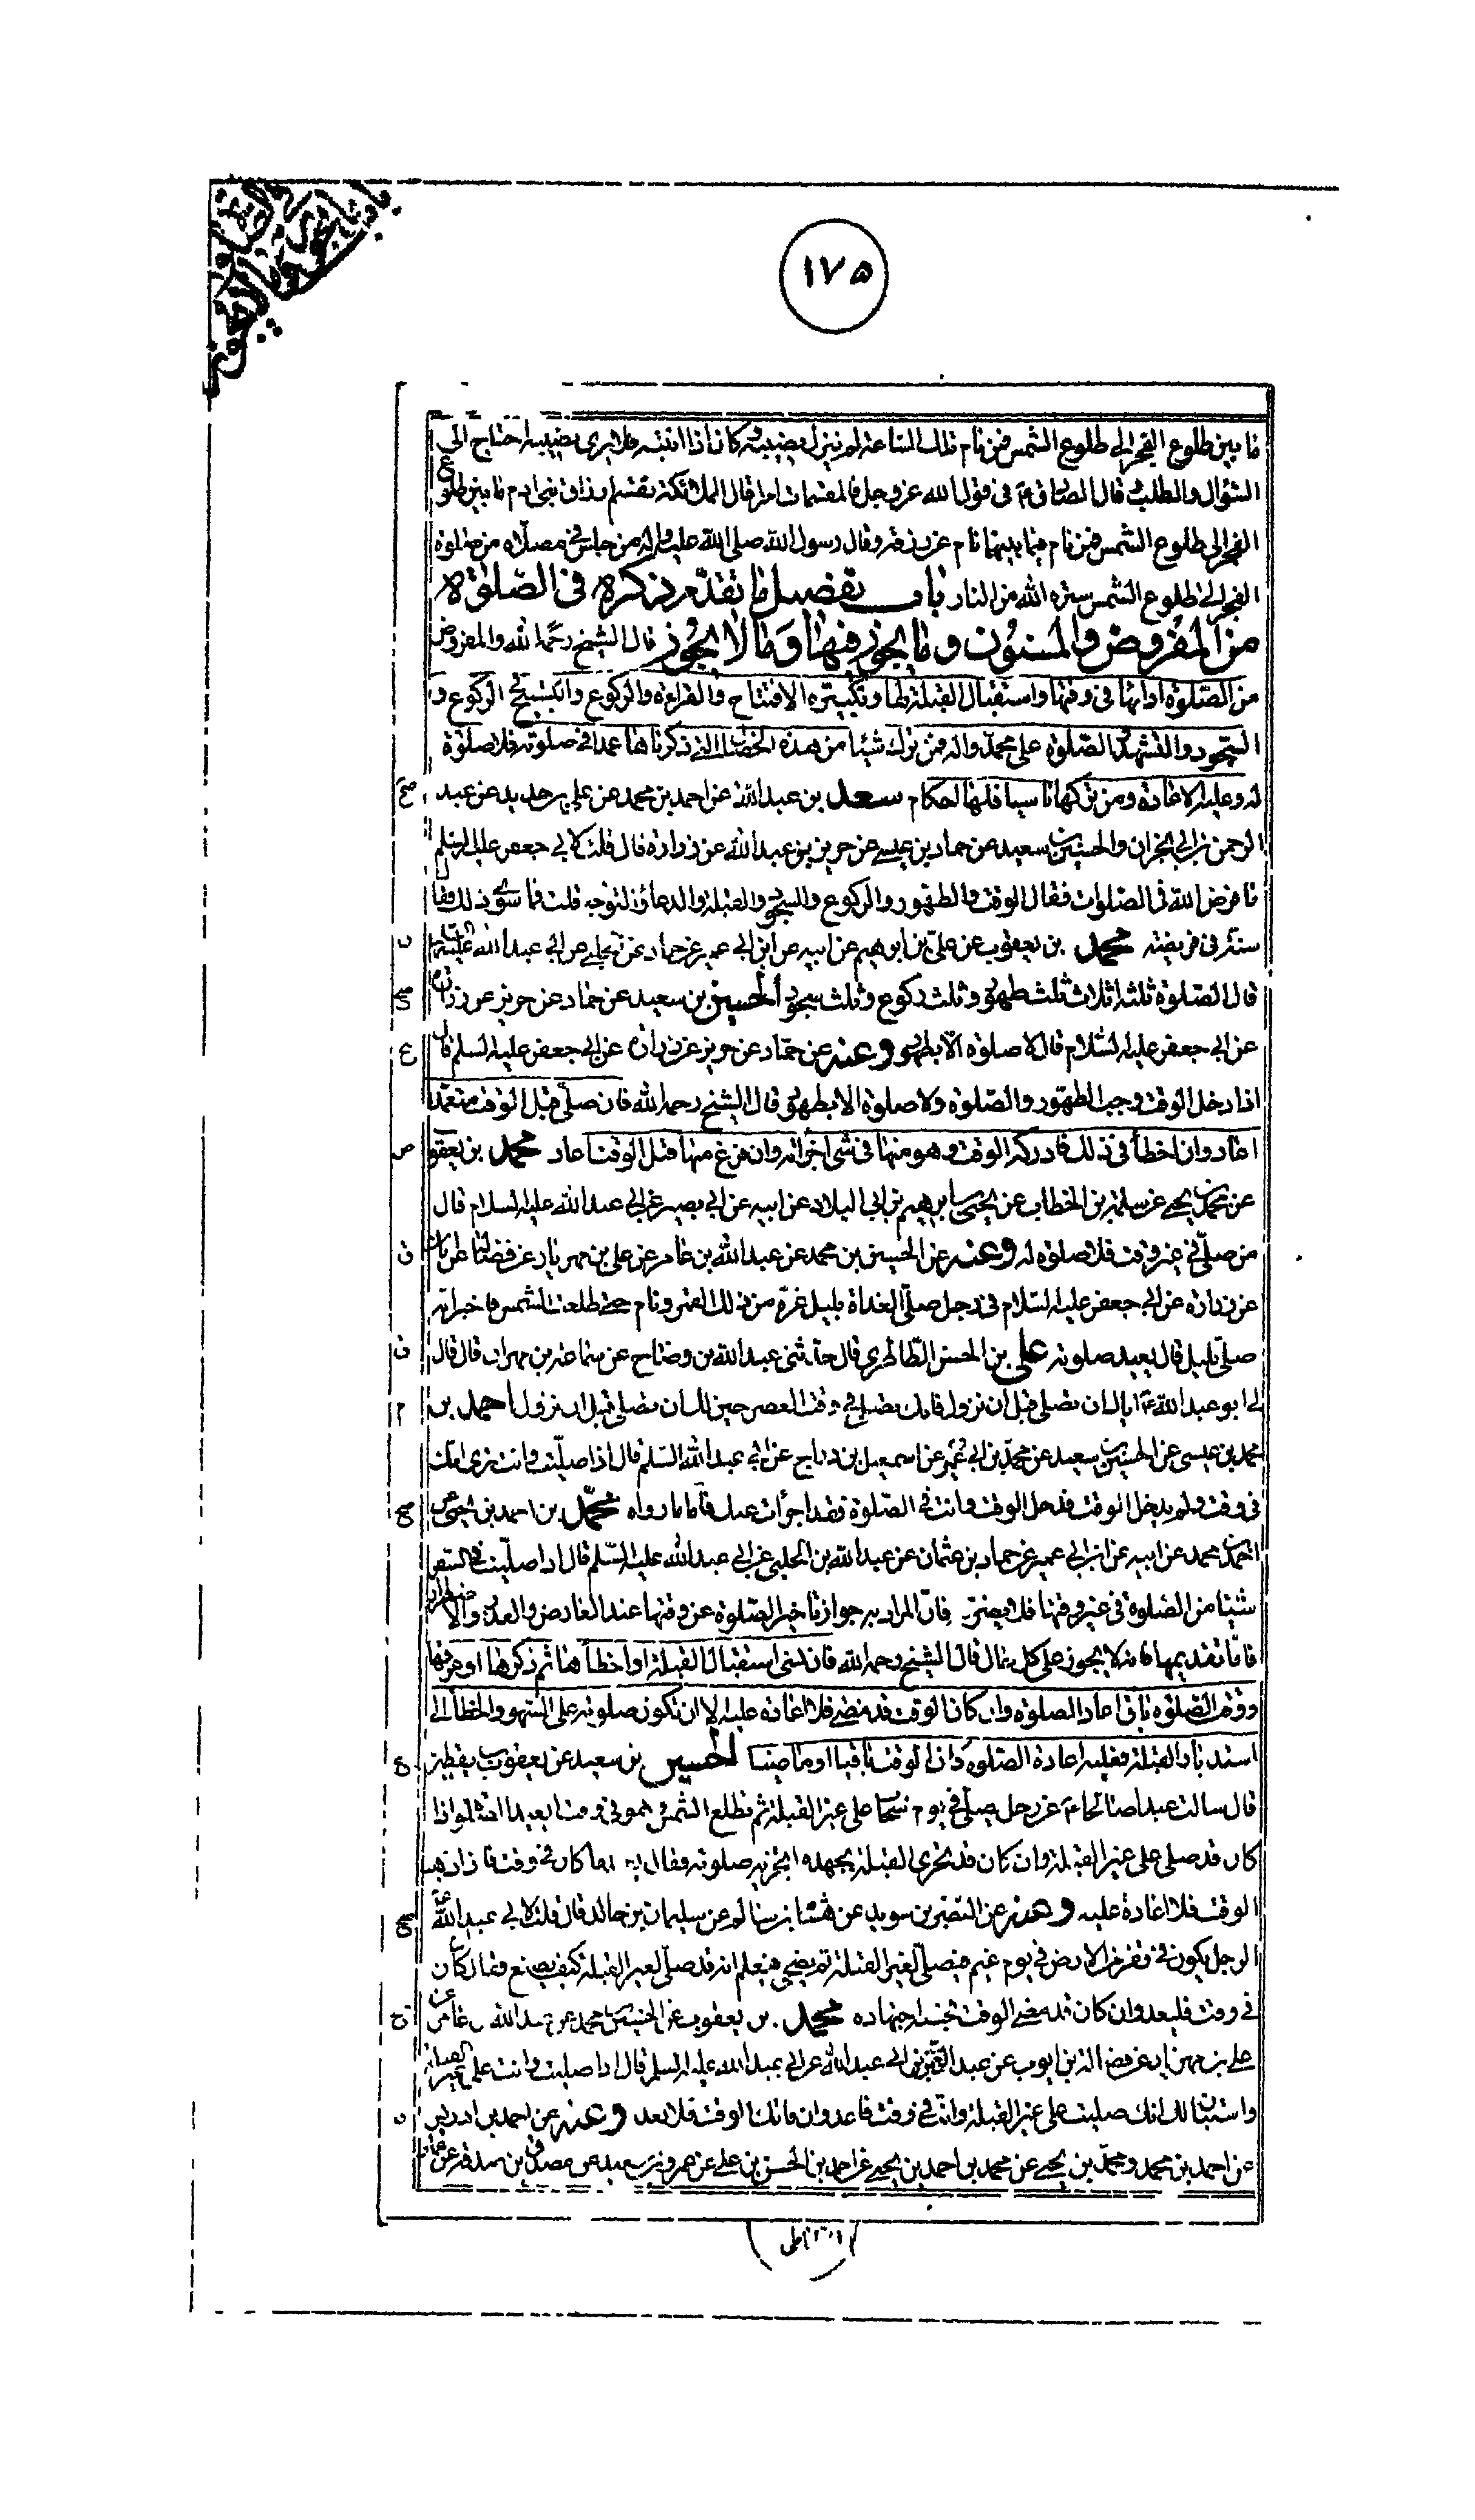 ١٧٥
ما بين طلوع الفجر الى طلوع الشمس فمن نام تلك الساعة لم ينزل نصيبه وكان اذا انتبه فلا يرى نصيبه احتاج الى
السؤال والطلب قال الصادق ع في قول الله عز وجل فالمقسمات امرا قال الملائكة تقسم ارزاق بني ادم ما بين طلوع
الفجر الى طلوع الشمس فمن نام فيما بينهما نام عن رزقه وقال رسول الله صلى الله عليه واله من جلس في مصلاه من صلوة
الفجر الى طلوع الشمس ستره الله من النار باب تفصيل ما تقدم ذكره في الصلوة
من المفروض والمسنون وما يجوز فيها وما لا يجوز قال الشيخ رحمه الله والمفروض
من الصلوة اداؤها في وقتها واستقبال القبلة لها وتكبيرة الافتتاح والقراءة والركوع والتسبيح في الركوع و
السجود والتشهد والصلوة على محمد واله فمن ترك شيئا من هذه الخصال التي ذكرناها عمدا في صلوته فلا صلوة
له وعليه الاعادة ومن تركها ناسيا فلها احكام سعد بن عبدالله عن احمد بن محمد عن علي بن حديد عن عبد
الرحمن بن ابي نجران والحسين بن سعيد عن حماد بن عيسى عن حريز بن عبدالله عن زرارة قال قلت لابي جعفر عليه السلم
ما فرض الله في الصلوات فقال الوقت والطهور والركوع والسجود والقبلة والدعاء والتوجه قلت فما سوى ذلك فقال
سنة في فريضة محمد بن يعقوب عن علي بن ابرهيم عن ابيه عن ابن ابي عمير عن حماد عن الحلبي عن ابي عبدالله عليه السلم
قال الصلوة ثلثة اثلاث ثلث طهور وثلث ركوع وثلث سجود الحسين بن سعيد عن حماد عن حريز عن زرارة
عن ابي جعفر عليه السلام قال لا صلوة الا بطهور وعنه عن حماد عن حريز عن زرارة عن ابي جعفر عليه السلم قال
اذا دخل الوقت وجب الطهور والصلوة ولا صلوة الا بطهور قال الشيخ رحمه الله فان صلى قبل الوقت متعمدا
اعاد وان اخطأ في ذلك فادركه الوقت وهو منها في شئ اجزأته وان فرغ منها قبل الوقت اعاد محمد بن يعقوب
عن محمد بن يحيى عن سلمة بن الخطاب عن يحيى بن ابرهيم بن ابي البلاد عن ابيه عن ابي بصير عن ابي عبدالله عليه السلام قال
من صلى في غير وقت فلا صلوة له وعنه عن الحسين بن محمد عن عبدالله بن عامر عن علي بن مهزيار عن فضالة عن ابان
عن زرارة عن ابي جعفر عليه السلام في رجل صلى الغداة بليل غره من ذلك القمر ونام حتى طلعت الشمس فاخبر انه
صلى بليل قال يعيد صلوته علي بن الحسن الطاطري قال حدثني عبدالله بن وضاح عن سماعة بن مهران قال قال
لي ابو عبدالله ع اياك ان تصلي قبل ان تزول فانك تصلي في وقت العصر خير لك ان تصلي قبل ان تزول احمد بن
محمد بن عيسى عن الحسين بن سعيد عن محمد بن ابي عمير عن اسمعيل بن رباح عن ابي عبدالله السلم قال اذا صليت وانت ترى انك
في وقت ولم يدخل الوقت فدخل الوقت وانت في الصلوة فقد اجزأت عنك فاما ما رواه محمد بن احمد بن يحيى عن
احمد بن محمد عن ابيه عن ابن ابي عمير عن حماد بن عثمان عن عبيدالله بن الحلبي عن ابي عبدالله عليه السلم قال اذا صليت في السفر
شيئا من الصلوة في غير وقتها فلا يضرك فان المراد به جواز تاخير الصلوة عن وقتها عند العارض والعذر والاضطرار
فاما تقديمها فانه لا يجوز على كل حال قال الشيخ رحمه الله فان نسي استقبال القبلة او اخطأها ثم ذكرها او عرفها
ووقت الصلوة باق اعاد الصلوة وان كان الوقت قد مضى فلا اعادة عليه الا ان تكون صلوته على السهو والخطأ الى
استدبار القبلة فعليه اعادة الصلوة كان الوقت باقيا او ماضيا الحسين بن سعيد عن يعقوب بن يقطين
قال سالت عبدا صالحا ع عن رجل يصلي في يوم سحاب على غير القبلة ثم تطلع الشمس وهو في وقت ايعيد الصلوة اذا
كان قد صلى على غير القبلة وان كان قد تحرى القبلة بجهده اتجزيه صلوته فقال يعيد ما كان في وقت فاذا ذهب
الوقت فلا اعادة عليه وعنه عن النضر بن سويد عن هشام بن سالم عن سليمان بن خالد قال قلت لابي عبدالله ع
الرجل يكون في قفر من الارض في يوم غيم فيصلي لغير القبلة ثم يضحي فيعلم انه قد صلى لغير القبلة كيف يصنع فقال ان كان
في وقت فليعد وان كان قد مضى الوقت فحسبه اجتهاده محمد بن يعقوب عن الحسين بن محمد عن عبدالله بن عامر عن
علي بن مهزيار عن فضالة بن ايوب عن عبدالرحمن بن ابي عبدالله عن ابي عبدالله عليه السلم قال اذا صليت وانت على غير القبلة
واستبان لك انك صليت على غير القبلة وانت في وقت فاعد وان فاتك الوقت فلا تعد وعنه عن احمد بن ادريس
عن احمد بن محمد ومحمد بن يحيى عن محمد بن احمد بن يحيى عن احمد بن الحسن بن علي عن عمرو بن سعيد عن مصدق بن صدقة عن عمار